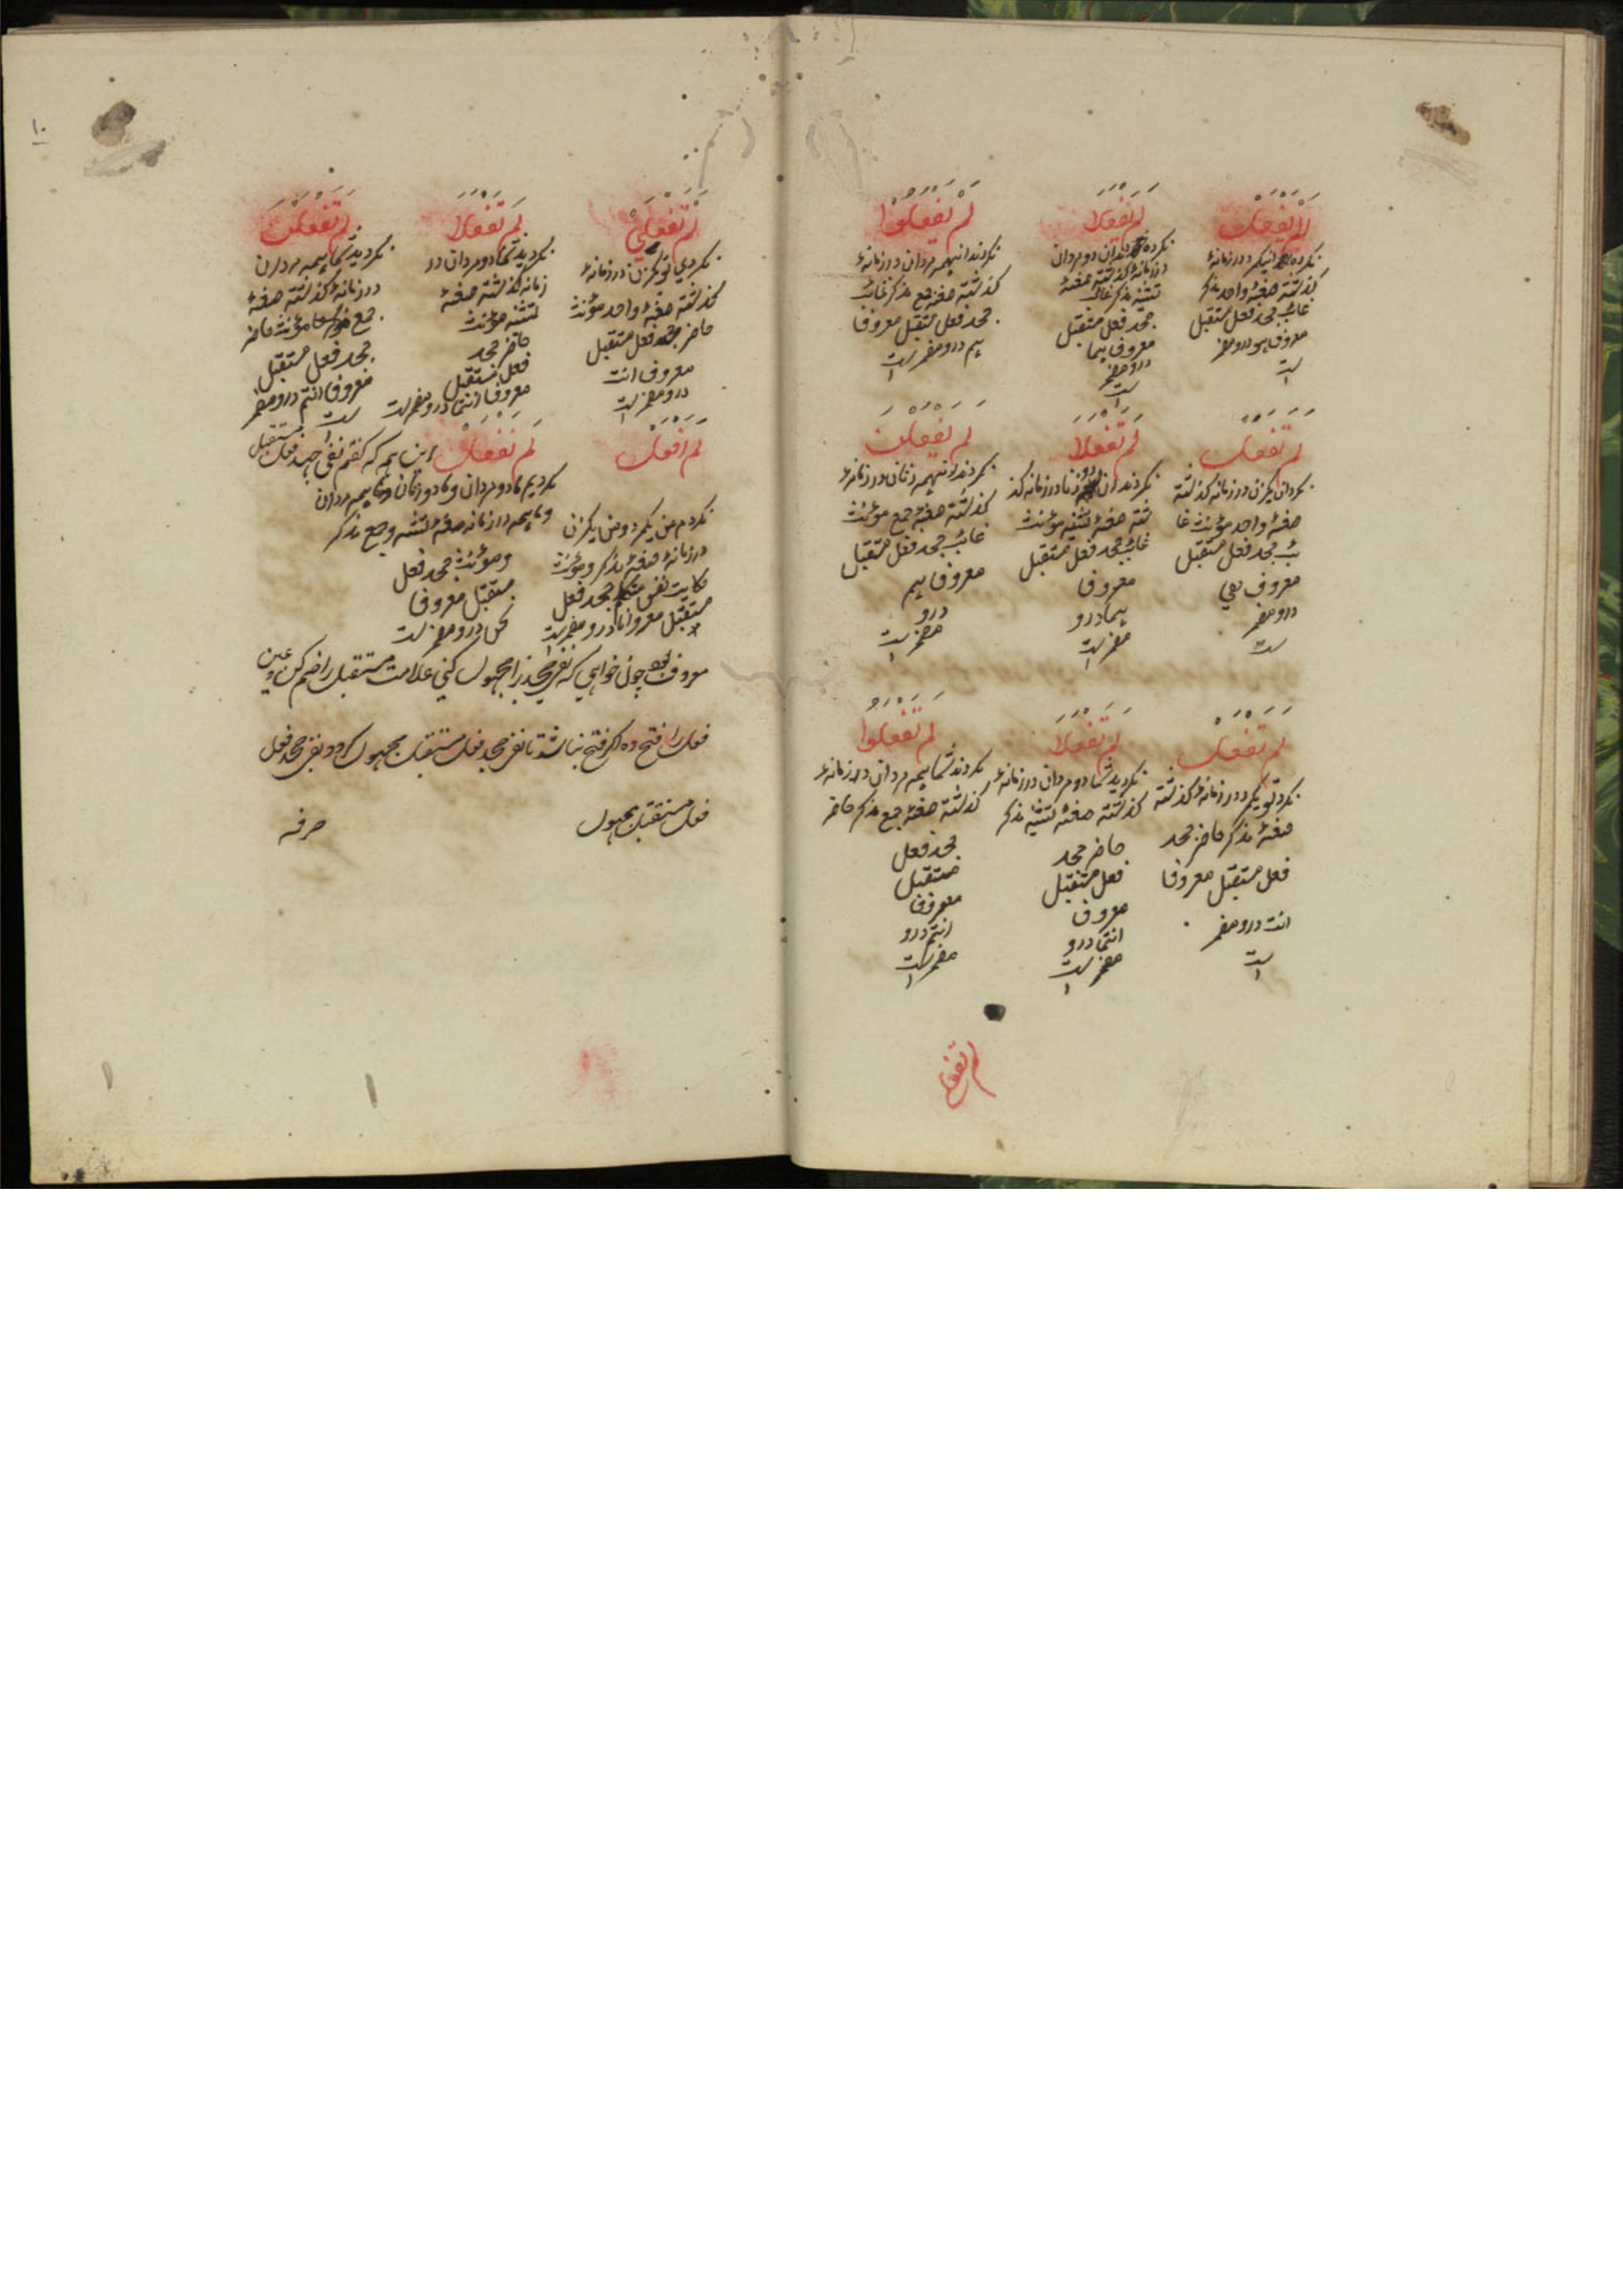 لم يفعل
نكرد انيكمرد در زمانهٔ
كذشته صغهٔ واحد مذكر
غائب جحد فعل مستقبل
معروف هو درو مضمر
ست
لم يفعلا
نكردند ان دو مردان
در زمانهٔ كذشته صغهٔ
تثنيه مذكر غائب
جحد فعل مستقبل
معروف هما
درو مضمر
ست
لم يفعلوا
نكردند انهمه مردان در زمانهٔ
كذشته صغهٔ جمع مذكر غائب
جحد فعل مستقبل معروف
هم درو مضمر ست
لم تفعل
نكرد ان يكزن در زمانه كذشته
صغهٔ واحد مؤنث غا
ئب جحد فعل مستقبل
معروف هي
درو مضمر
ست
لم تفعلا
نكردند ان دو زنا در زمانه كذ
شته صغهٔ تثنيه مؤنث
غائب جحد فعل مستقبل
معروف
هما درو
مضمر ست
لم يفعلن
نكردند انهمه زنان در زمانهٔ
كذشته صغهٔ جمع مؤنث
غائب جحد فعل مستقبل
معروف هم
درو
مضمر ست
لم تفعل
نكرد تو يكمرد در زمانهٔ كذشته
صغهٔ مذكر حاضر جحد
فعل مستقبل معروف
انت درو مضمر
ست
لم تفعلا
نكرديد شما دو مردان در زمانهٔ
كذشته صغهٔ تثنيه مذكر
حاضر جحد
فعل مستقبل
معروف
انتما درو
مضمر ست
لم تفعلوا
نكردند شما همه مردان در زمانهٔ
كذشته صغهٔ جمع مذكر حاضر
جحد فعل
مستقبل
معروف
انتم درو
مضمر ست
لم تفعلي
١٠
لم تفعلي
نكردي تو يكزن در زمانهٔ
كذشته صغهٔ واحد مؤنث
حاضر جحد فعل مستقبل
معروف انت
درو مضمر ست
لم تفعلا
نكرديد شما دو مردان در
زمانه كذشته صغهٔ
تثنيه مؤنث
حاضر جحد
فعل مستقبل
معروف انتما درو مضمر ست
لم تفعلن
نكرديد شما همه مردان
در زمانهٔ كذشته صغهٔ
جمع مؤنث حاضر
جحد فعل مستقبل
معروف انتم درو مضمر
ست
لم افعل
نكردم من يكمرد و من يكزن
در زمانهٔ صغهٔ مذكر و مؤنث
حكايت نفس متكلم جحد فعل
مستقبل معروف انا درو مضمر ست
لم نفعل
نكرديم ما دو مردان و ما دو زنان و ما همه مردان
و ما همه در زمانه صغهٔ تثنيه و جمع مذكر
و مؤنث جحد فعل
مستقبل معروف
نحن درو مضمر ست
اين همه كه كفتم نفي جحد فعل مستقبل
معروف بود چون خواهي كه نفي جحد را مجهول كني علامت مستقبل را ضم كن و عين
فعل را فتح ده اكر فتح نباشد تا نفي جحد فعل مستقبل مجهول كردد نفي جحد فعل
فعل مستقبل مجهول صرفه